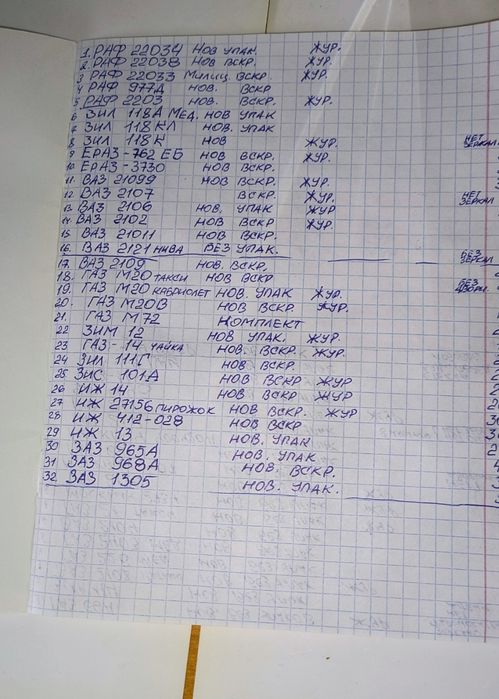 1. РАФ 22034 НОВ УПАК. ЖУР.
2. РАФ 22038 НОВ ВСКР. ЖУР.
3 РАФ 22033 Милиц. ВСКР. ЖУР.
4 РАФ 977Д НОВ. ВСКР
5 РАФ 2203 НОВ. ВСКР. ЖУР.
6 ЗИЛ 118А МЕД. НОВ УПАК
7 ЗИЛ 118КЛ НОВ. УПАК
8 ЗИЛ 118К НОВ ЖУР. НЕТ ЗЕРКАЛ
9 ЕРАЗ-762 ЕБ НОВ ВСКР. ЖУР.
10 ЕРАЗ-3730 НОВ ВСКР.
11. ВАЗ 21099 НОВ ВСКР. ЖУР.
12 ВАЗ 2107 ВСКР. ЖУР. НЕТ ЗЕРКАЛ
13. ВАЗ 2106 НОВ. УПАК ЖУР
14 ВАЗ 2102 НОВ ВСКР ЖУР.
15 ВАЗ 21011 НОВ ВСКР.
16. ВАЗ 2121 НИВА БЕЗ УПАК. БЕЗ ЗЕРКАЛ
17. ВАЗ 2109 НОВ. ВСКР.
18. ГАЗ М20 ТАКСИ НОВ ВСКР БЕЗ
19. ГАЗ М20 КАБРИОЛЕТ НОВ. УПАК ЖУР.
20. ГАЗ М20В НОВ ВСКР ЖУР.
21. ГАЗ М72 КОМПЛЕКТ
22 ЗИМ 12 НОВ УПАК. ЖУР.
23 ГАЗ-14 ЧАЙКА НОВ. ВСКР. ЖУР.
24 ЗИЛ 111Г НОВ ВСКР.
25 ЗИС 101А НОВ ВСКР ЖУР
26 ИЖ 14 НОВ ВСКР ЖУР
27 ИЖ 27156 ПИРОЖОК НОВ ВСКР. ЖУР
28 ИЖ 412-028 НОВ ВСКР
29 ИЖ 13 НОВ. УПАК
30 ЗАЗ 965А НОВ. УПАК
31 ЗАЗ 968А НОВ. ВСКР.
32 ЗАЗ 1305 НОВ. УПАК.